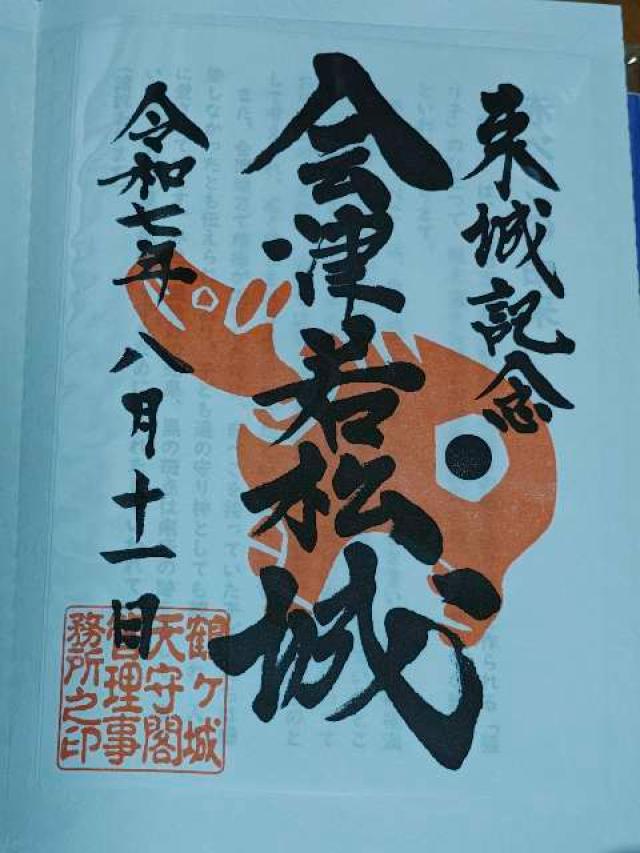 来城記念
会津若松城
令和七年八月十一日
鶴ヶ城
天守閣
管理事
務所之印